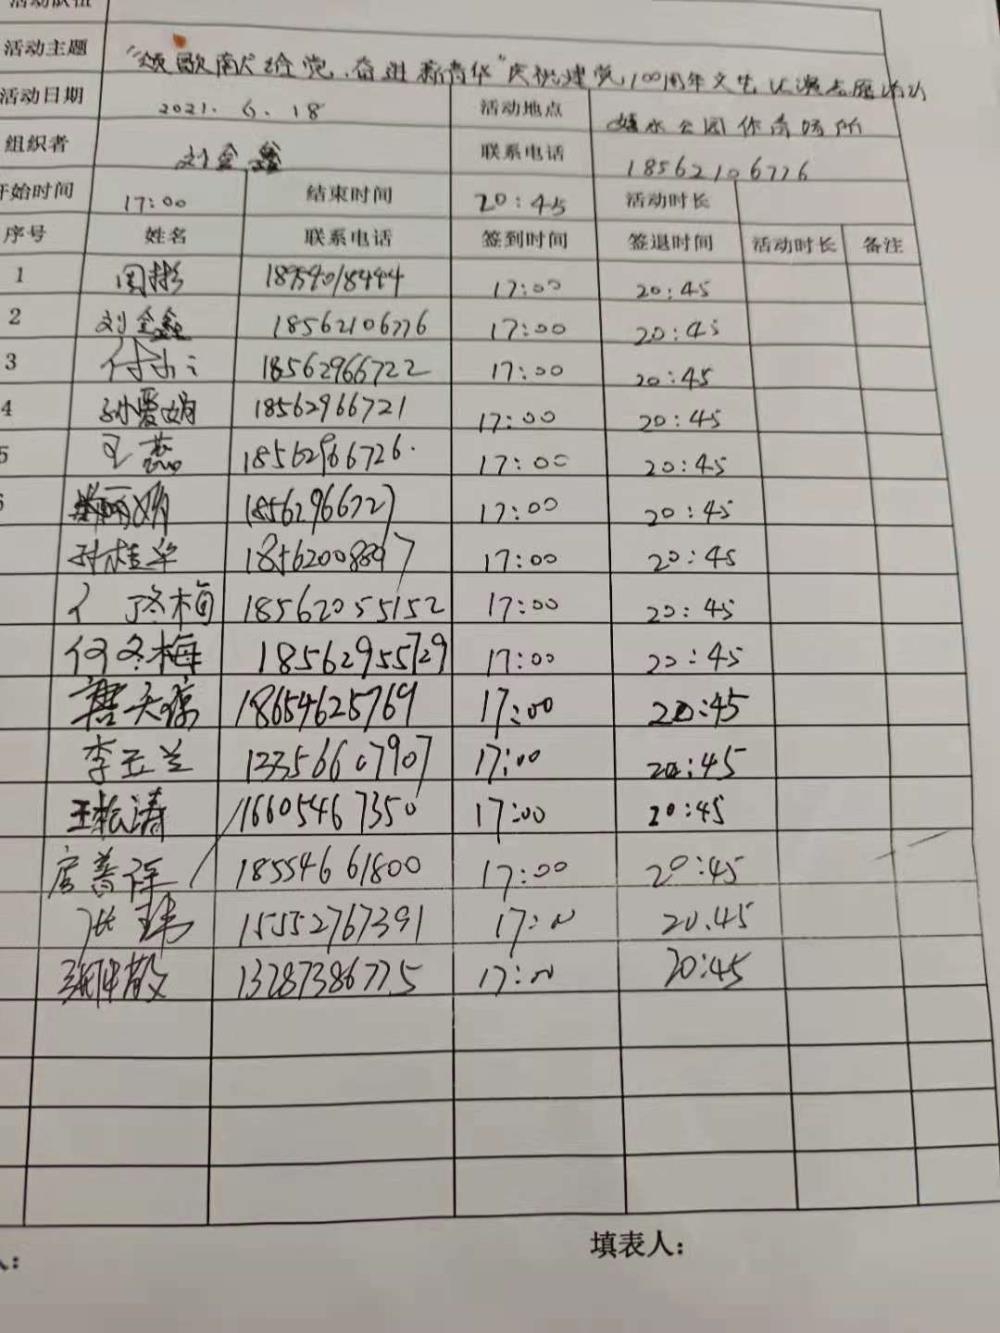 活动主题 "颂歌献给党、奋进新青华"庆祝建党100周年文艺汇演志愿活动
活动日期 2021. 6. 18 活动地点 公园体育场所
组织者 刘金鑫 联系电话 18562106776
开始时间 17:00 结束时间 20:45 活动时长
序号 姓名 联系电话 签到时间 签退时间 活动时长 备注
1 周彬 18954018444 17:00 20:45
2 刘金鑫 18562106776 17:00 20:45
3 18562966722 17:00 20:45
4 孙爱娟 18562966721 17:00 20:45
5 王燕 18562966726. 17:00 20:45
丽娟 18562966727 17:00 20:45
孙桂华 18562008897 17:00 20:45
冬梅 18562055152 17:00 20:45
何冬梅 18562955729 17:00 20:45
唐天琼 18654625769 17:00 20:45
李玉兰 13356607907 17:00 20:45
王松涛 16605467350 17:00 20:45
房善保 18554661800 17:00 20:45
张玮 15552767391 17:00 20.45
13287386775 17:00 20:45
人: 填表人: